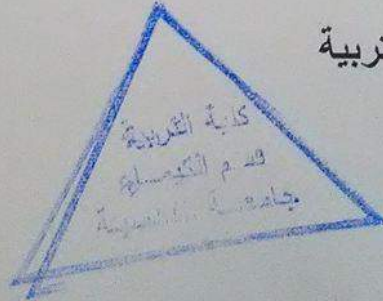 تربية
كلية التربية
قسم الكيمياء
جامعة